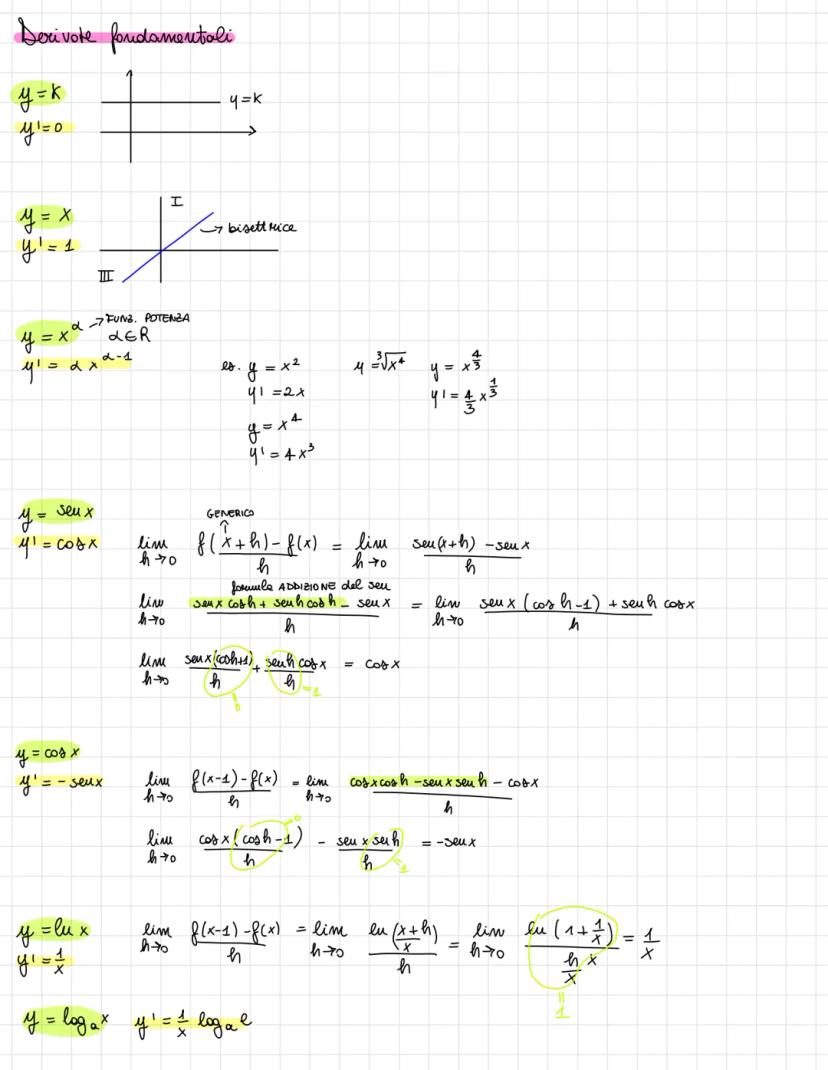 Derivate fondamentali
y = k
y = k
y' = 0
I
y = x
→ bisettrice
y' = 1
III
y = x^α → FUNZ. POTENZA
α ∈ R
y' = α x^(α-1)
es. y = x² y = ∛x⁴ y = x^(4/3)
y' = 2x y' = 4/3 x^(1/3)
y = x⁴
y' = 4x³
y = sen x
GENERICO
y' = cos x lim h→0 (f(x+h) - f(x))/h = lim h→0 (sen(x+h) - sen x)/h
formula ADDIZIONE del sen
lim h→0 (sen x cos h + sen h cos h - sen x)/h = lim h→0 (sen x (cos h - 1) + sen h cos x)/h
lim h→0 sen x (cos h + 1)/h + sen h cos x/h = cos x
0 = 1
y = cos x
y' = - sen x lim h→0 (f(x-1) - f(x))/h = lim h→0 (cos x cos h - sen x sen h - cos x)/h
lim h→0 cos x (cos h - 1)/h - sen x sen h/h = - sen x
0 1
y = ln x lim h→0 (f(x-1) - f(x))/h = lim h→0 ln((x+h)/x)/h = lim h→0 ln(1 + 1/x)/(h/x x) = 1/x
y' = 1/x
= 1
y = log_a x y' = 1/x log_a e